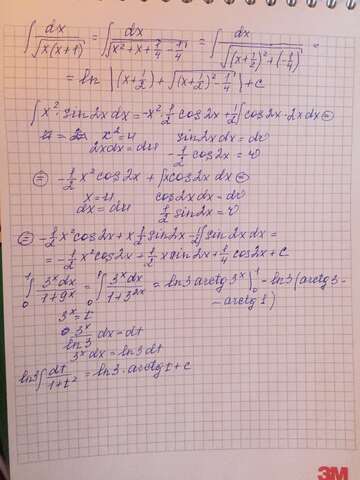 ∫ dx/√(x(x+1)) = ∫ dx/√(x²+x+1/4-1/4) = ∫ dx/√((x+1/2)²+(-1/4)) =
= ln |(x+1/2)+√((x+1/2)²-1/4)|+c
∫x²·sin2xdx=-x²·1/2cos2x+1/2∫cos2x·2xdx=
x²=u sin2xdx=dv
2xdx=du -1/2cos2x=v
= -1/2x²cos2x+∫xcos2xdx=
x=u cos2xdx=dv
dx=du 1/2sin2x=v
= -1/2x²cos2x+x1/2sin2x-1/2∫sin2xdx=
= -1/2x²cos2x+1/2xsin2x+1/4cos2x+c
∫₀¹ 3ˣdx/(1+9ˣ) = ∫₀¹ 3ˣdx/(1+3²ˣ) = ln3arctg3ˣ|₀¹ = ln3(arctg3-
-arctg1)
3ˣ=t
3ˣ/ln3 dx=dt
3ˣdx=ln3dt
ln3∫dt/(1+t²)=ln3·arctgt+c
3M